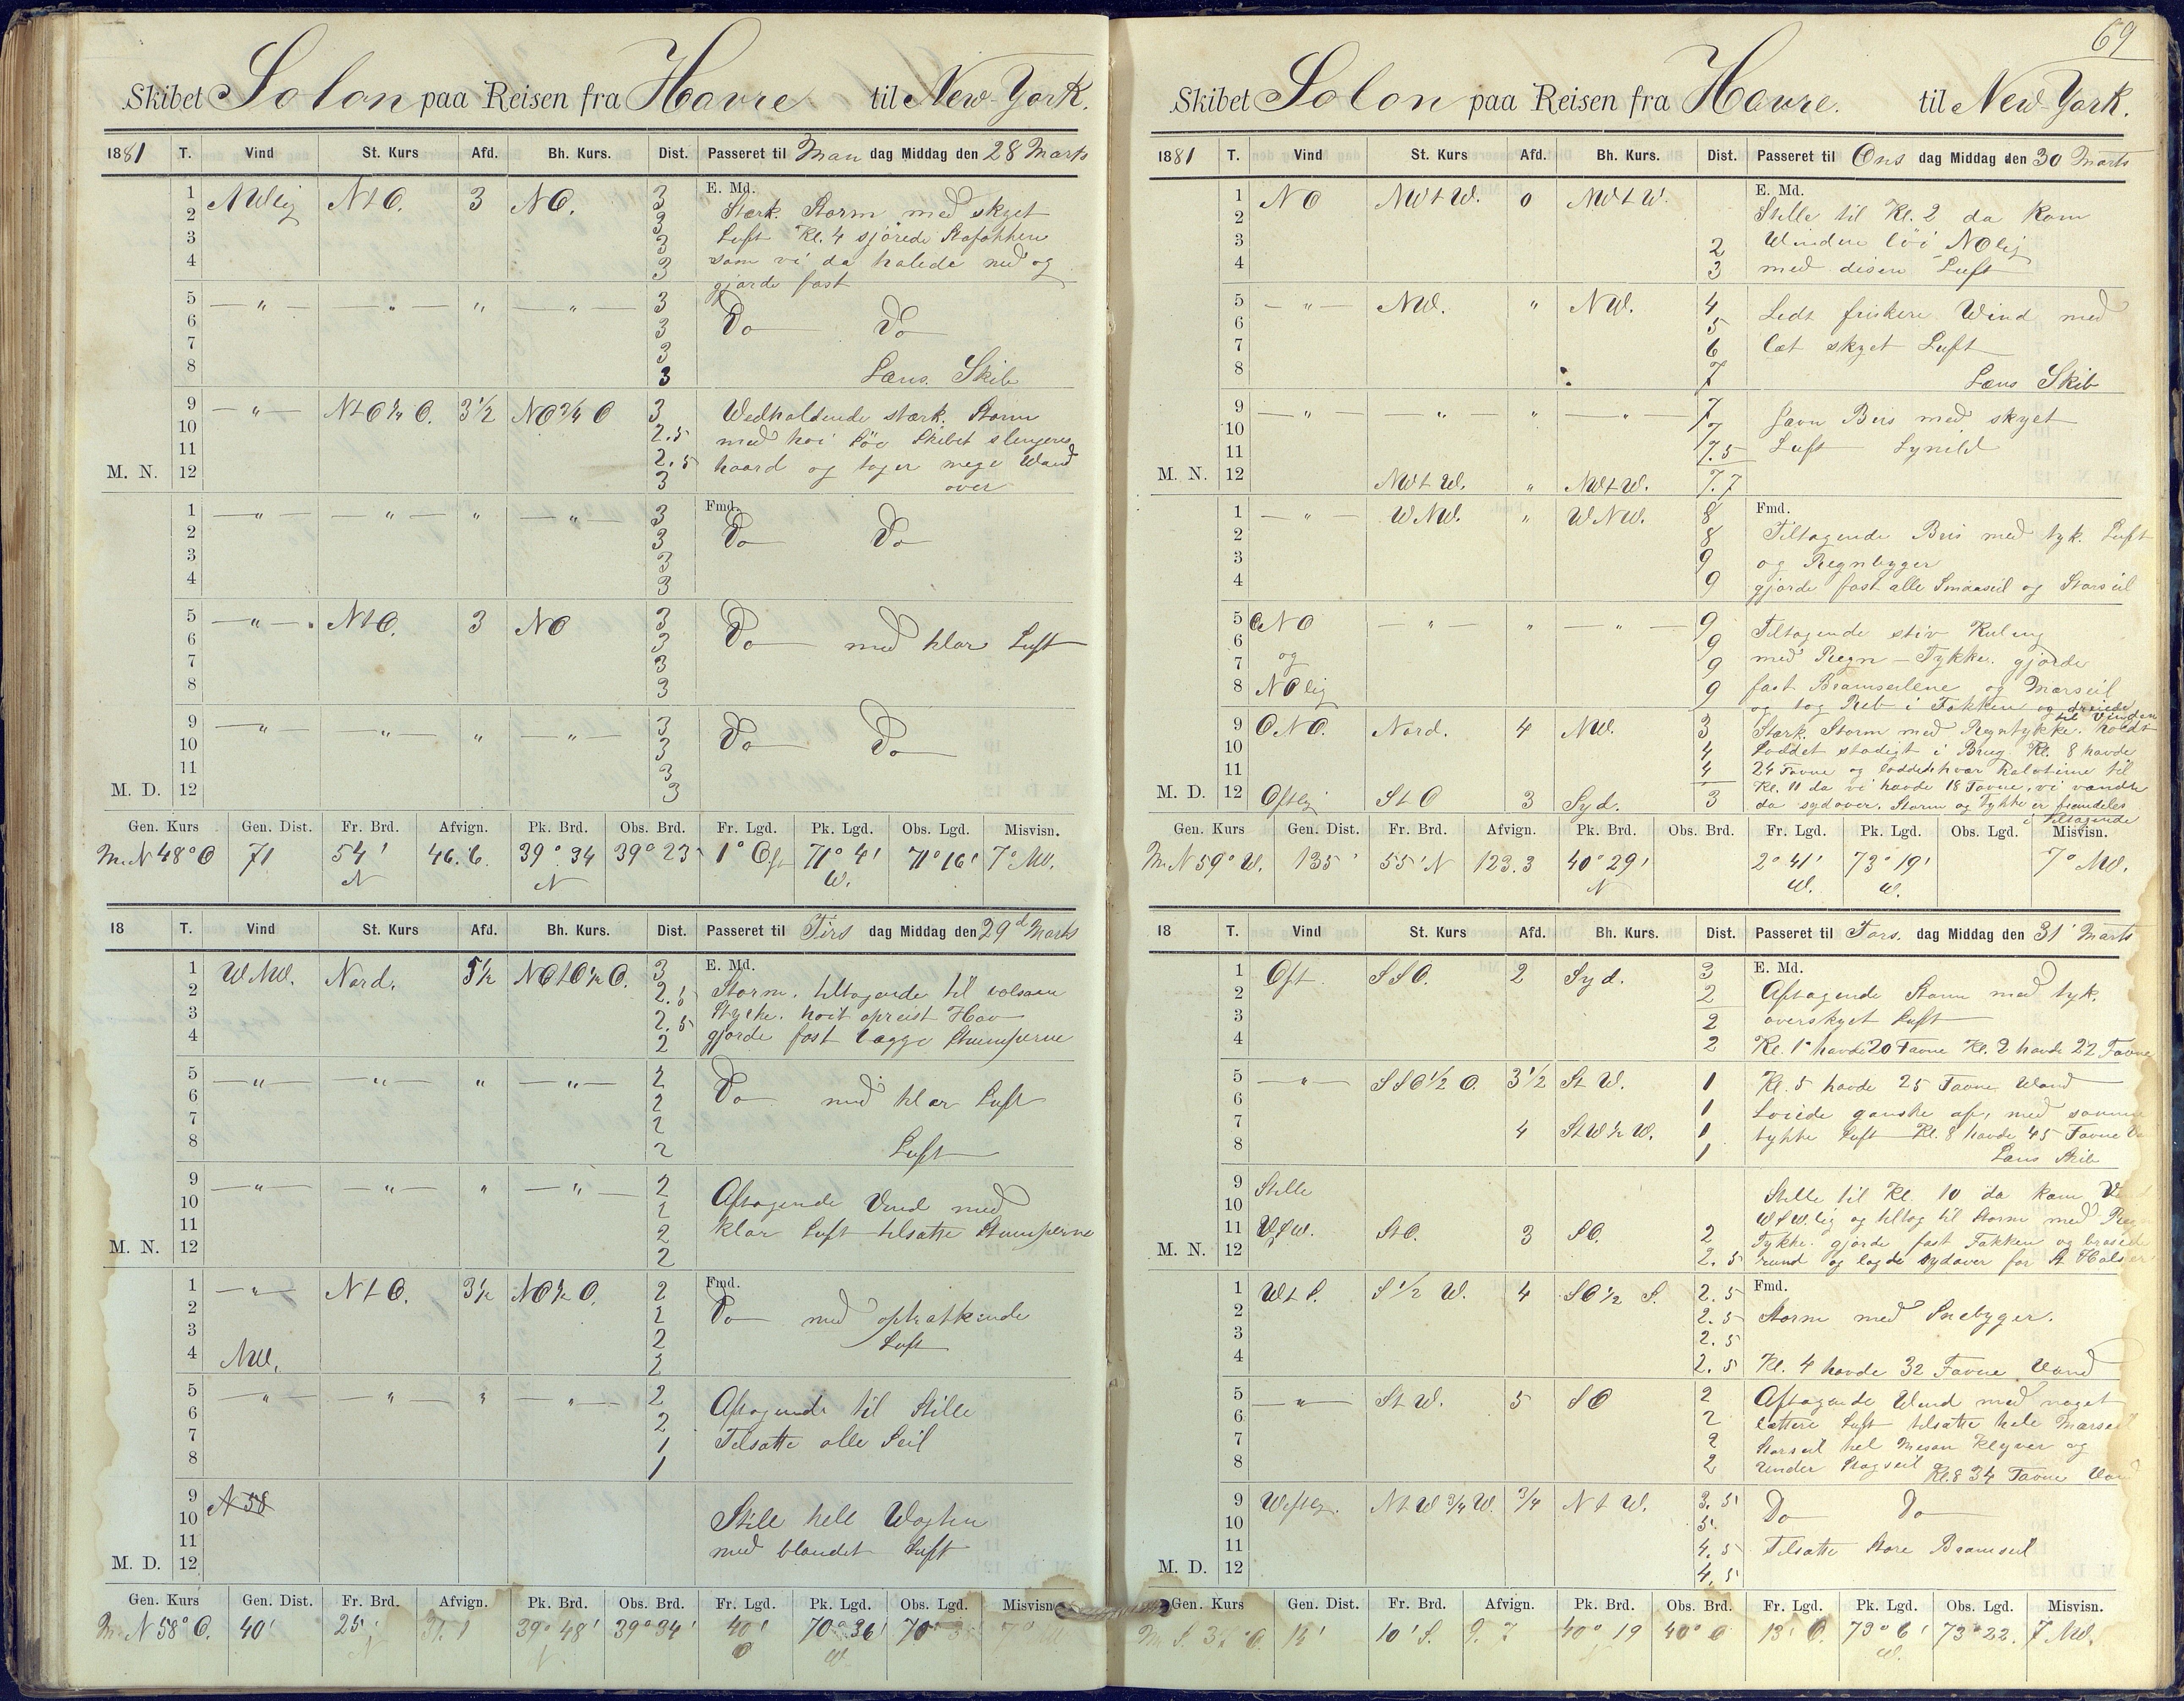 Skibet Solon paa Reisen fra Havre til New-York.
1881 T. Vind St. Kurs Afd. Bh. Kurs. Dist. Passeret til Man dag Middag den 28 Marts
1 NWlig NtO. 3 NO. 3 E. Md.
2 3 Stærk Storm med skyet
3 3 Luft Kl. 4 sjørede Stafokken
4 3 som vi da halede ned og
gjorde fast
5 — " — — " — " — " — 3
6 3 Do Do
7 3
8 3 Læns Skib
9 — " — NtO¼O. 3½ NO¾O 3 Vedholdende stærk Storm
10 2.5 med høi Söe Skibet slingrer
11 2.5 haard og tager mege Vand
M. N. 12 3 over
1 — " — — " — " — " — 3 Fmd.
2 3 Do Do
3 3
4 3
5 — " — NtO. 3 NO 3
6 3 Do med klar Luft
7 3
8 3
9 — " — — " — " — " — 3
10 3 Do Do
11 3
M. D. 12 3
Gen. Kurs Gen. Dist. Fr. Brd. Afvign. Pk. Brd. Obs. Brd. Fr. Lgd. Pk. Lgd. Obs. Lgd. Misvisn.
M. N 48° O 71 54' N 46.6. 39° 34 N 39° 23 1° Ost 71° 4' W. 71° 16' 7° NW.
18 T. Vind St. Kurs Afd. Bh. Kurs. Dist. Passeret til Tirs dag Middag den 29d Marts
1 WNW. Nord. 5½ NOtO½O. 3 E. Md.
2 2.5 Storm, tiltagende til volsom
3 2.5 Styrke. høit opreist Hav
4 2 gjorde fast begge Stumperne
5 — " — — " — " — " — 2
6 2 Do med klar Luft
7 2
8 2 Luft
9 — " — — " — " — " — 2
10 2 Aftagende Vind med
11 2 klar Luft tilsatte Stumperne
M. N. 12 2
1 — " — NtO. 3½ NO½O. 2 Fmd.
2 2 Do med optrækkende
3 2 Luft
4 NW. 2
5 — " — — " — " — " — 2
6 2 Aftagende til Stille
7 1 Tilsatte alle Seil
8 1
9 N 58
10 Stille hele Vagten
11 med blandet Luft
M. D. 12
Gen. Kurs Gen. Dist. Fr. Brd. Afvign. Pk. Brd. Obs. Brd. Fr. Lgd. Pk. Lgd. Obs. Lgd. Misvisn.
M. N 58° O. 40' 25 N 39° 48' N 39° 34' 40' O 70° 36' W 70°
69
Skibet Solon paa Reisen fra Havre. til New-York.
1881 T. Vind St. Kurs Afd. Bh. Kurs. Dist. Passeret til Ons dag Middag den 30 Marts
1 NO NWtW. 0 NWtW. E. Md.
2 Stille til Kl. 2 da kom
3 2 Vinden löi NOlig
4 3 med disen Luft
5 — " — NW. " NW. 4 Lidt friskere Vind med
6 5
7 6 let skyet Luft
8 7 Læns Skib
9 — " — — " — " — " — 7 Jævn Bris med skyet
10 7
11 7.5 Luft Lynild
M. N. 12 NWtW. " NWtW. 7.7
1 — " — WNW. " WNW. 8 Fmd.
2 8 Tiltagende Bris med tyk. Luft
3 9 og Regnbyger
4 9 gjorde fast alle Smaaseil og Storseil
5 ONO — " — " — " — 9
6 og 9 Tiltagende stiv Kuling
7 9 med Regn-Tykke. gjorde
8 NOlig 9 fast Bramseilene og Mærseil
og tog Reb i Fokken og dreiede til Vinden
9 ONO. Nord. 4 NW. 3 Stærk Storm med Regntykke. holdt
10 4 Loddet stadigt i Brug Kl. 8 havde
11 4 24 Favne og loddede hver halvtime til
M. D. 12 Ostlig StO 3 Syd. 3 Kl. 11 da vi havde 18 Favne, vi vendte
da sydover. Storm og tykke er fremdeles
i tiltagende
Gen. Kurs Gen. Dist. Fr. Brd. Afvign. Pk. Brd. Obs. Brd. Fr. Lgd. Pk. Lgd. Obs. Lgd. Misvisn.
M. N 59° W. 135' 55' N 123.3 40° 29' N 2° 41' W. 73° 19' W. 7° NW.
18 T. Vind St. Kurs Afd. Bh. Kurs. Dist. Passeret til Tors. dag Middag den 31' Marts
1 Ost. SSO. 2 Syd. 3 E. Md.
2 2 Aftagende Storm med tyk.
3 2 overskyet Luft
4 2 Kl. 1 havde 20 Favne Kl. 2 havde 22 Favne
5 — " — SSO½O. 3½ StW. 1 Kl. 5 havde 25 Favne Vand
6 1 Löiede ganske af, med samme
7 4 StW½W. 1 tykke Luft Kl. 8 havde 45 Favne
8 1 Læns Skib
9 Stille Stille til Kl. 10 da kom
10 WSW.lig og tiltog til Storm med
11 WSW. StO. 3 SO. 2 Tykke. gjorde fast Fokken og brasede
M. N. 12 2.5 rund og lagde sydover for St. Hals
1 WtS. S½W. 4 SO½S. 2.5 Fmd.
2 2.5 Storm med Snebyger.
3 2.5
4 2.5 Kl. 4 havde 32 Favne Vand
5 — " — StW. 5 SO 2 Aftagende Vind med noget
6 2 lettere Luft tilsatte hele Mærseil
7 2 Storseil hel Mesan Klyver og
8 2 under Stagseil Kl. 8 34 Favne
9 Westlig. NtW¾W. ¾ NtW. 3.5
10 5. Do Do
11 4.5 Tilsatte Store Bramseil
M. D. 12 4.5
Gen. Kurs Gen. Dist. Fr. Brd. Afvign. Pk. Brd. Obs. Brd. Fr. Lgd. Pk. Lgd. Obs. Lgd. Misvisn.
10' S. 9.7 40° 19 13' O. 73° 6' W. 73° 22. 7 NW.